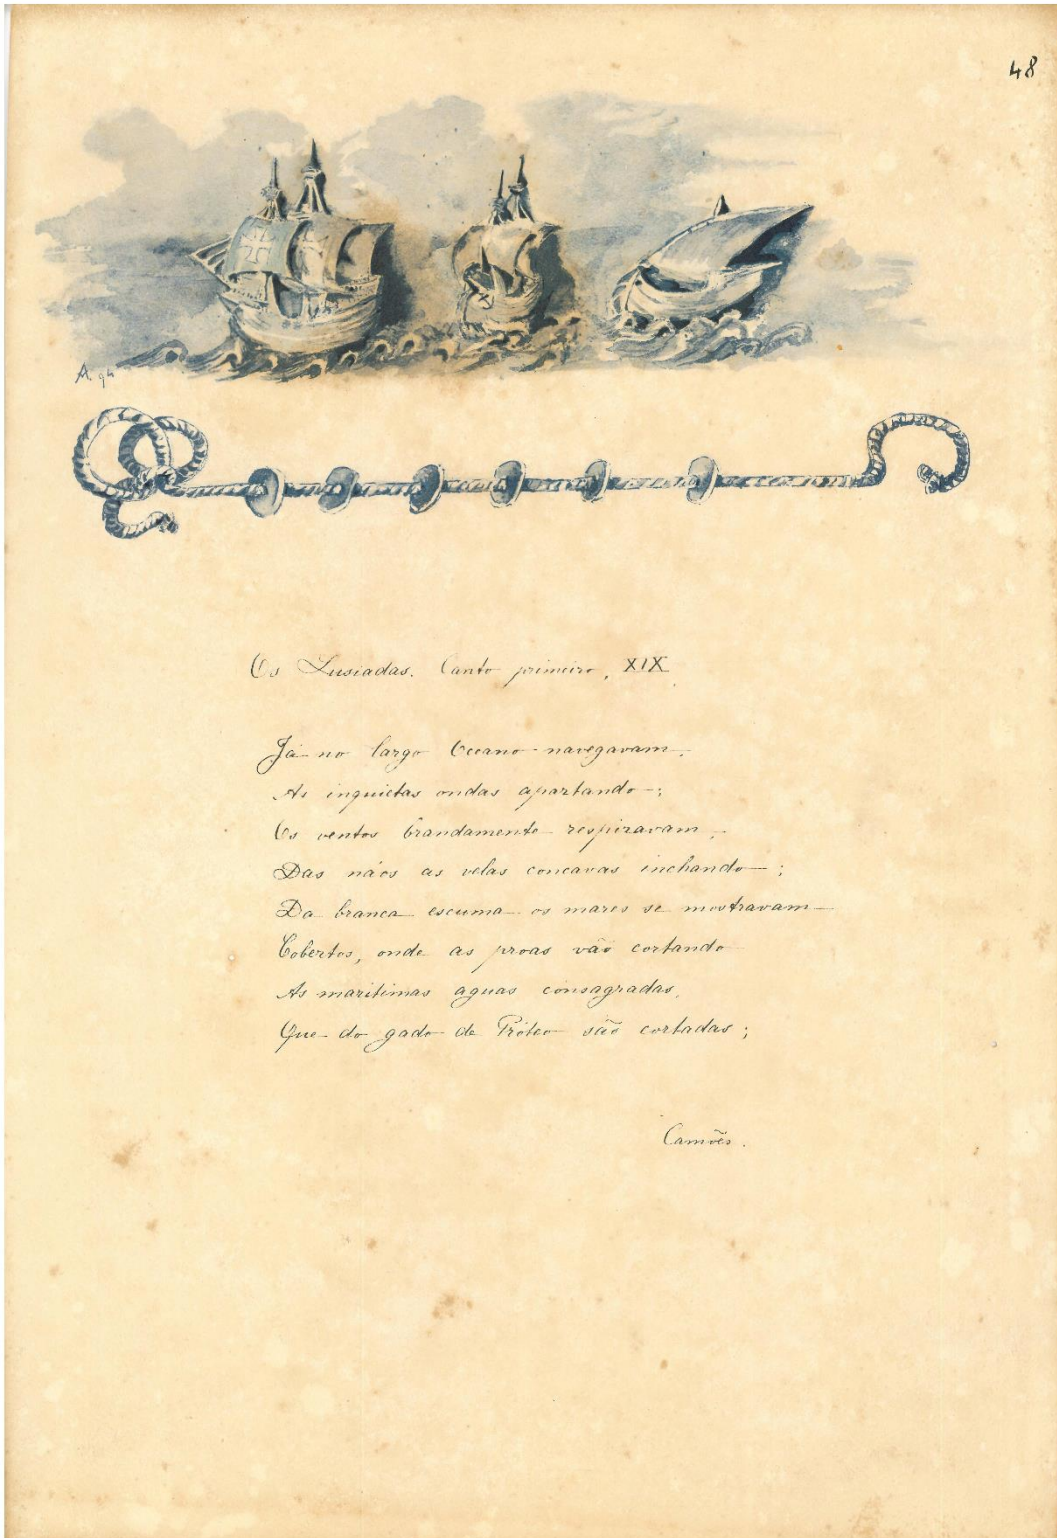 48
A. 94
Os Lusiadas. Canto primeiro, XIX
Já no largo Oceano navegavam,
As inquietas ondas apartando;
Os ventos brandamente respiravam,
Das náos as velas concavas inchando;
Da branca escuma os mares se mostravam
Cobertos, onde as proas vão cortando
As maritimas aguas consagradas,
Que do gado de Próteo são cortadas;
Camões.